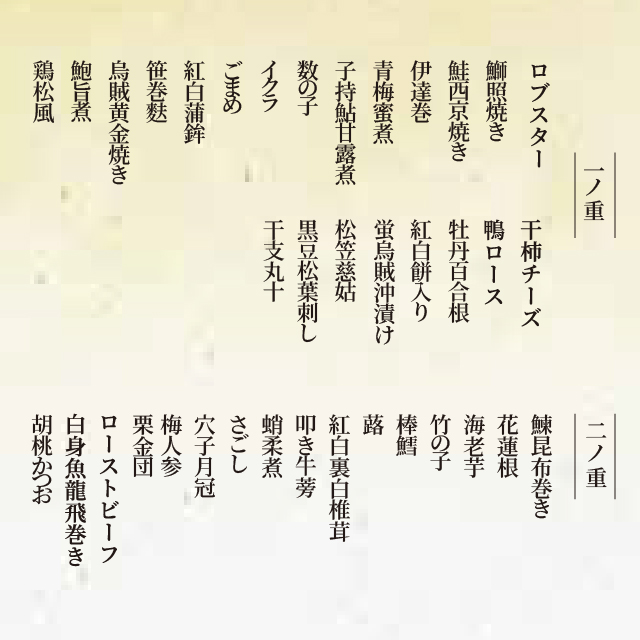 一ノ重
ロブスター
鰤照焼き
鮭西京焼き
伊達巻
青梅蜜煮
子持鮎甘露煮
数の子
イクラ
ごまめ
紅白蒲鉾
笹巻麩
烏賊黄金焼き
鮑旨煮
鶏松風
干柿チーズ
鴨ロース
牡丹百合根
紅白餅入り
蛍烏賊沖漬け
松笠慈姑
黒豆松葉刺し
干支丸十
二ノ重
鰊昆布巻き
花蓮根
海老芋
竹の子
棒鱈
蕗
紅白裏白椎茸
叩き牛蒡
蛸柔煮
さごし
穴子月冠
梅人参
栗金団
ローストビーフ
白身魚龍飛巻き
胡桃かつお